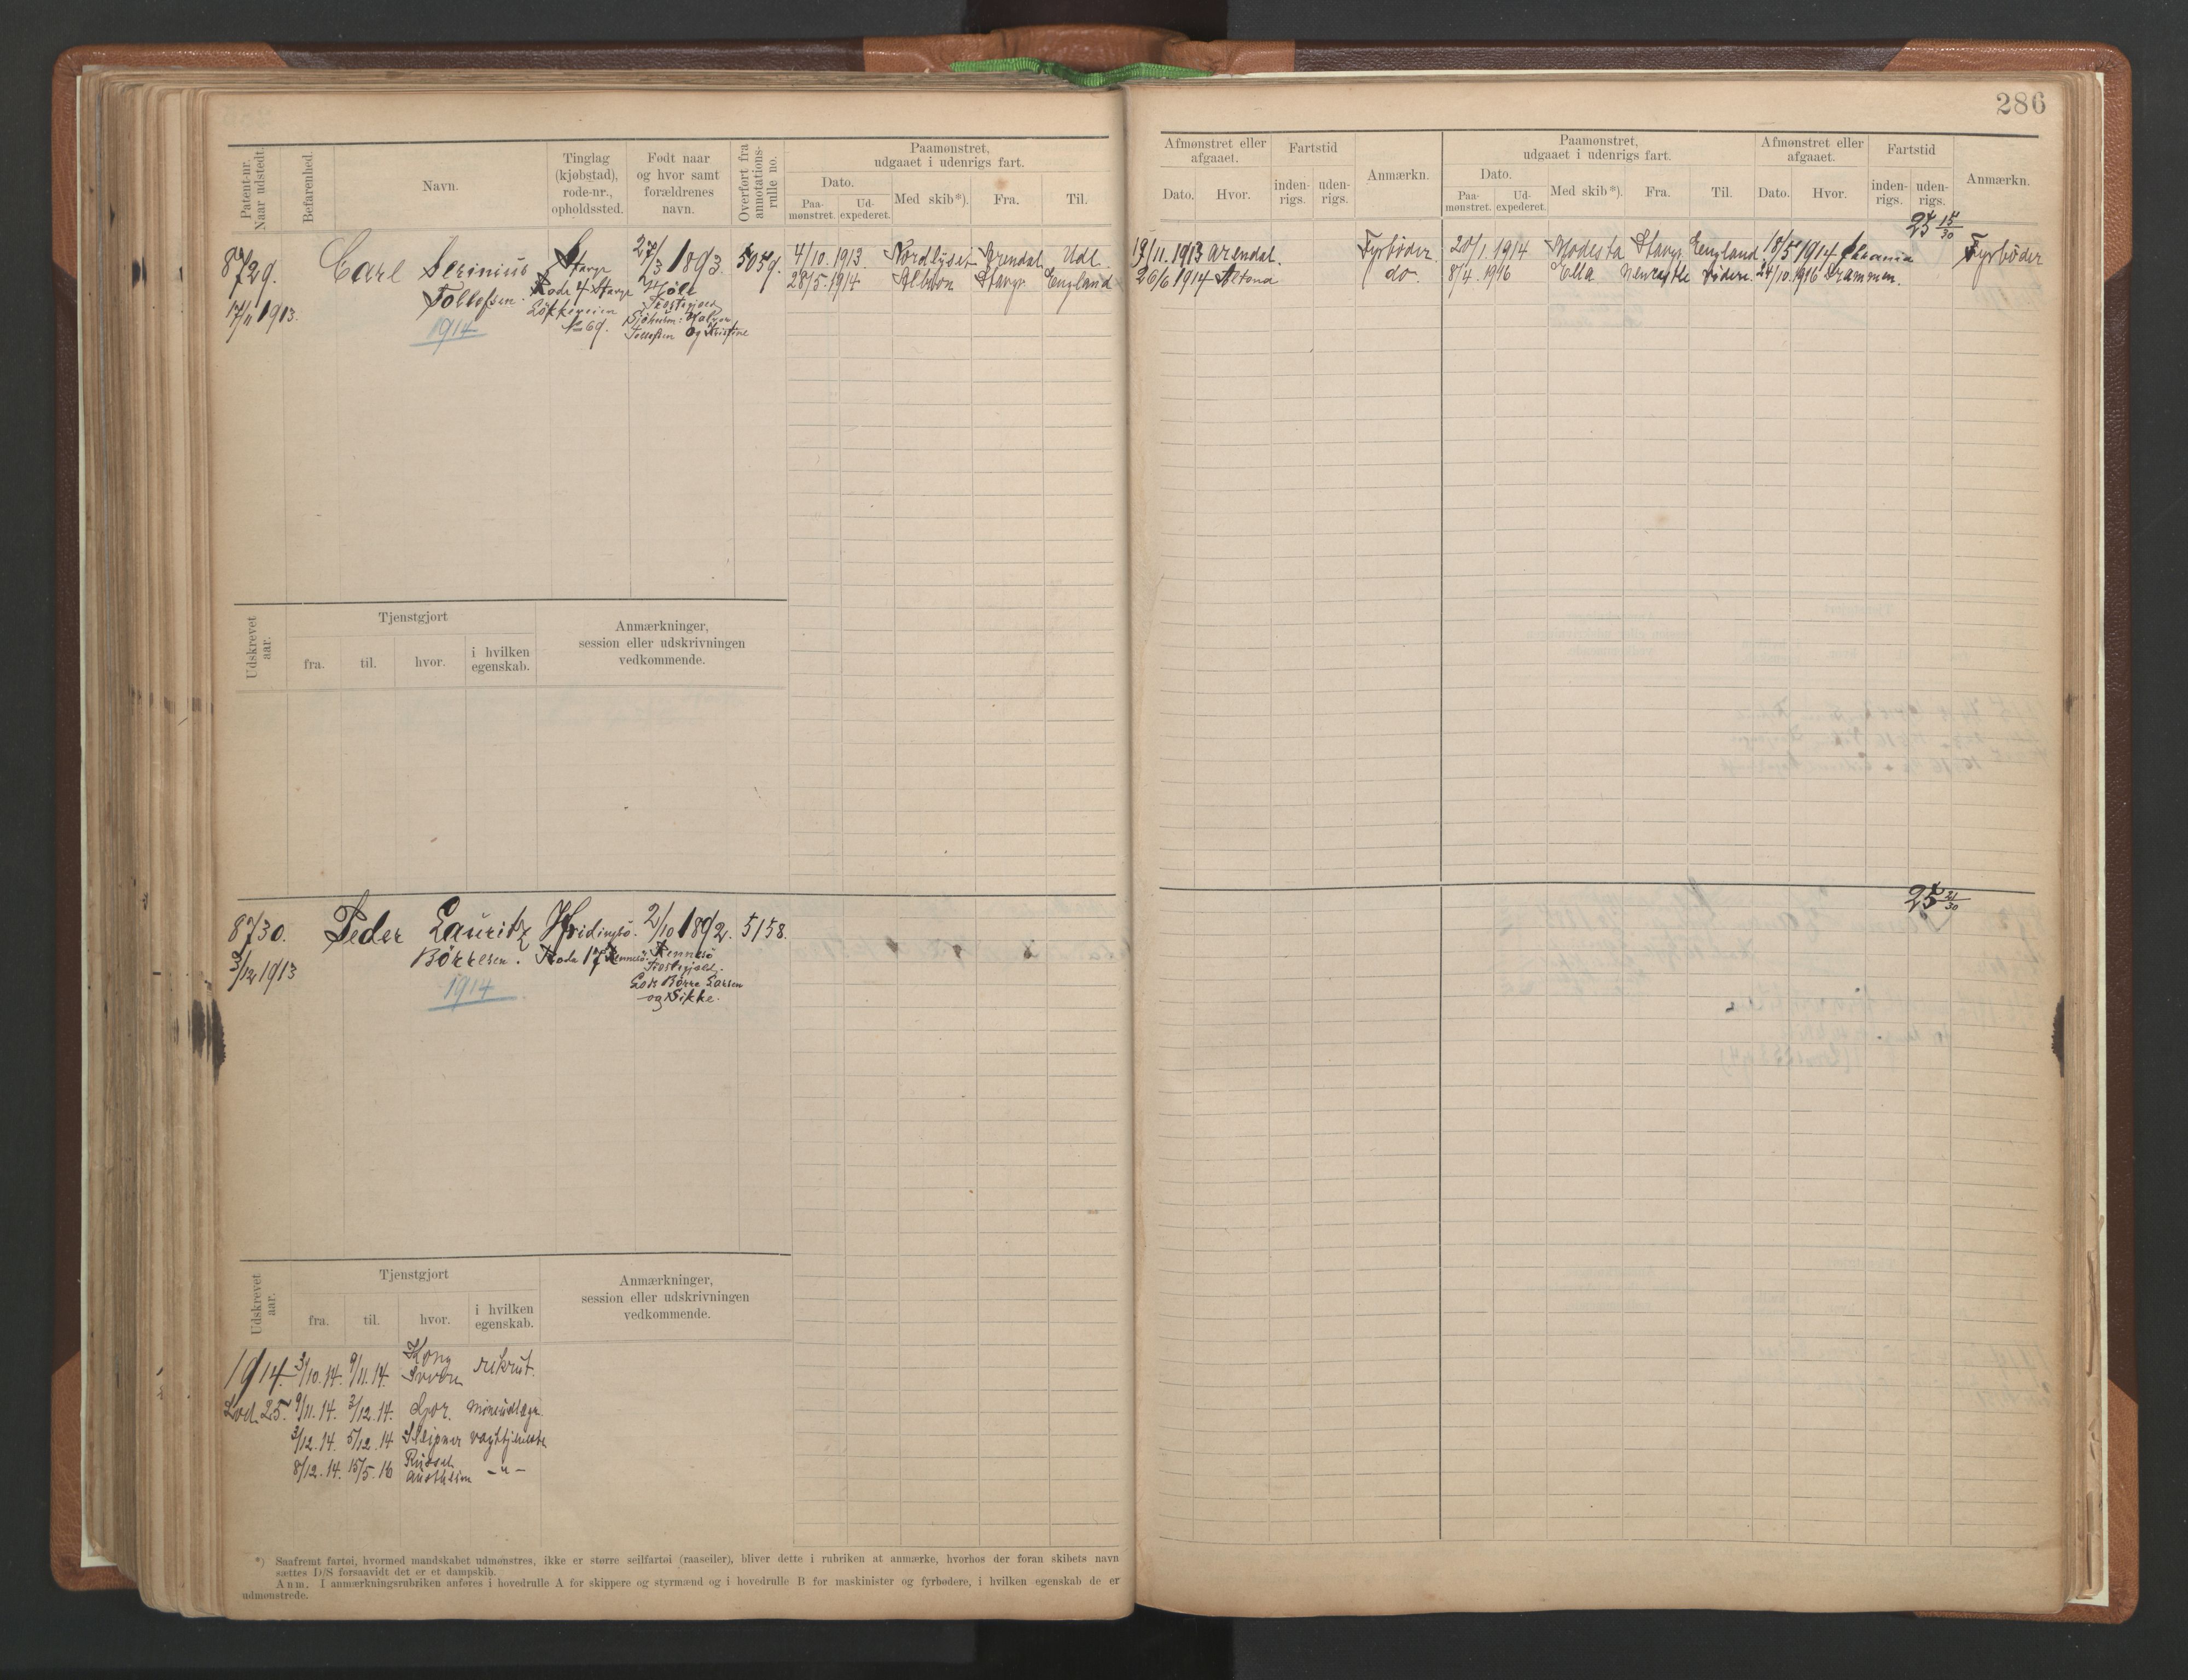 286
Patent-nr. Naar udstedt.
Befarenhed.
Navn.
Tinglag (kjøbstad), rode-nr., opholdssted.
Født naar og hvor samt forældrenes navn.
Overført fra annotations-rulle no.
Paamønstret, udgaaet i udenrigs fart.
Dato.
Paa-mønstret.
Ud-expederet.
Med skib*).
Fra.
Til.
Afmønstret eller afgaaet.
Dato.
Hvor.
Fartstid
inden-rigs.
uden-rigs.
Anmærkn.
Paamønstret, udgaaet i udenrigs fart.
Dato.
Paa-mønstret.
Ud-expederet.
Med skib*).
Fra.
Til.
Afmønstret eller afgaaet.
Dato.
Hvor.
Fartstid
inden-rigs.
uden-rigs.
Anmærkn.
25 15/30
8729.
17/11 1913.
Carl Serinius
Tollefsen.
1914
Stavgr
Rode 4 Stavgr
Løkkeveien
No 69.
27/3 1893.
Høle
Præstegjæld
Tollefsen og Kristine
5059.
4/10. 1913. Nordlyset Arendal Udl.
28/5. 1914 Albion Stavgr. England
19/11. 1913 Arendal. Fyrbøder
26/6 1914 Altona do.
20/1. 1914 Modesta Stavgr England 18/5 1914 Chrania Fyrbøder
8/4. 1916 Ella Newcastle 24/10. 1916 Drammen.
Udskrevet aar.
Tjenstgjort
fra.
til.
hvor.
i hvilken egenskab.
Anmærkninger, session eller udskrivningen vedkommende.
25 21/30
8730.
3/12 1913
Peder Lauritz
Børresen.
1914
Hvidingsø.
Rode 17 Rennesø.
2/10 1892.
Rennesø
Præstegjæld.
Børre Larsen
og Sikke.
5158.
Udskrevet aar.
Tjenstgjort
fra.
til.
hvor.
i hvilken egenskab.
Anmærkninger, session eller udskrivningen vedkommende.
1914 3/10. 14. 9/11. 14. Kong Sverre rekrut.
Lod. 25. 9/11. 14. 3/12. 14. Gor. mineudlægn.
3/12. 14. 5/12. 14 Sleipner vagttjeneste
8/12. 14. 15/5. 16 Austheim - " -
*) Saafremt fartøi, hvormed mandskabet udmønstres, ikke er større seilfartøi (raaseiler), bliver dette i rubriken at anmærke, hvorhos der foran skibets navn
sættes D/S forsaavidt det er et dampskib.
Anm. I anmærkningsrubriken anføres i hovedrulle A for skippere og styrmænd og i hovedrulle B for maskinister og fyrbødere, i hvilken egenskab de er
udmønstrede.